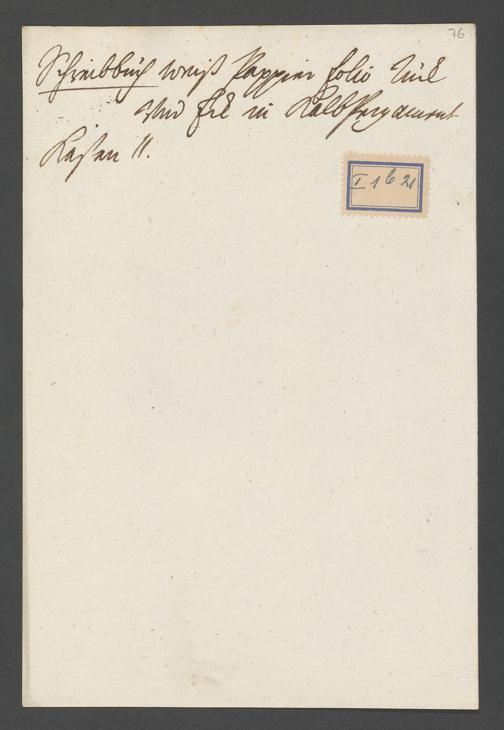 76
Schreibbuch weiß Pappier folio Rück
und Eck in Kalb Pergament
Kasten 11.
I 1 b 21